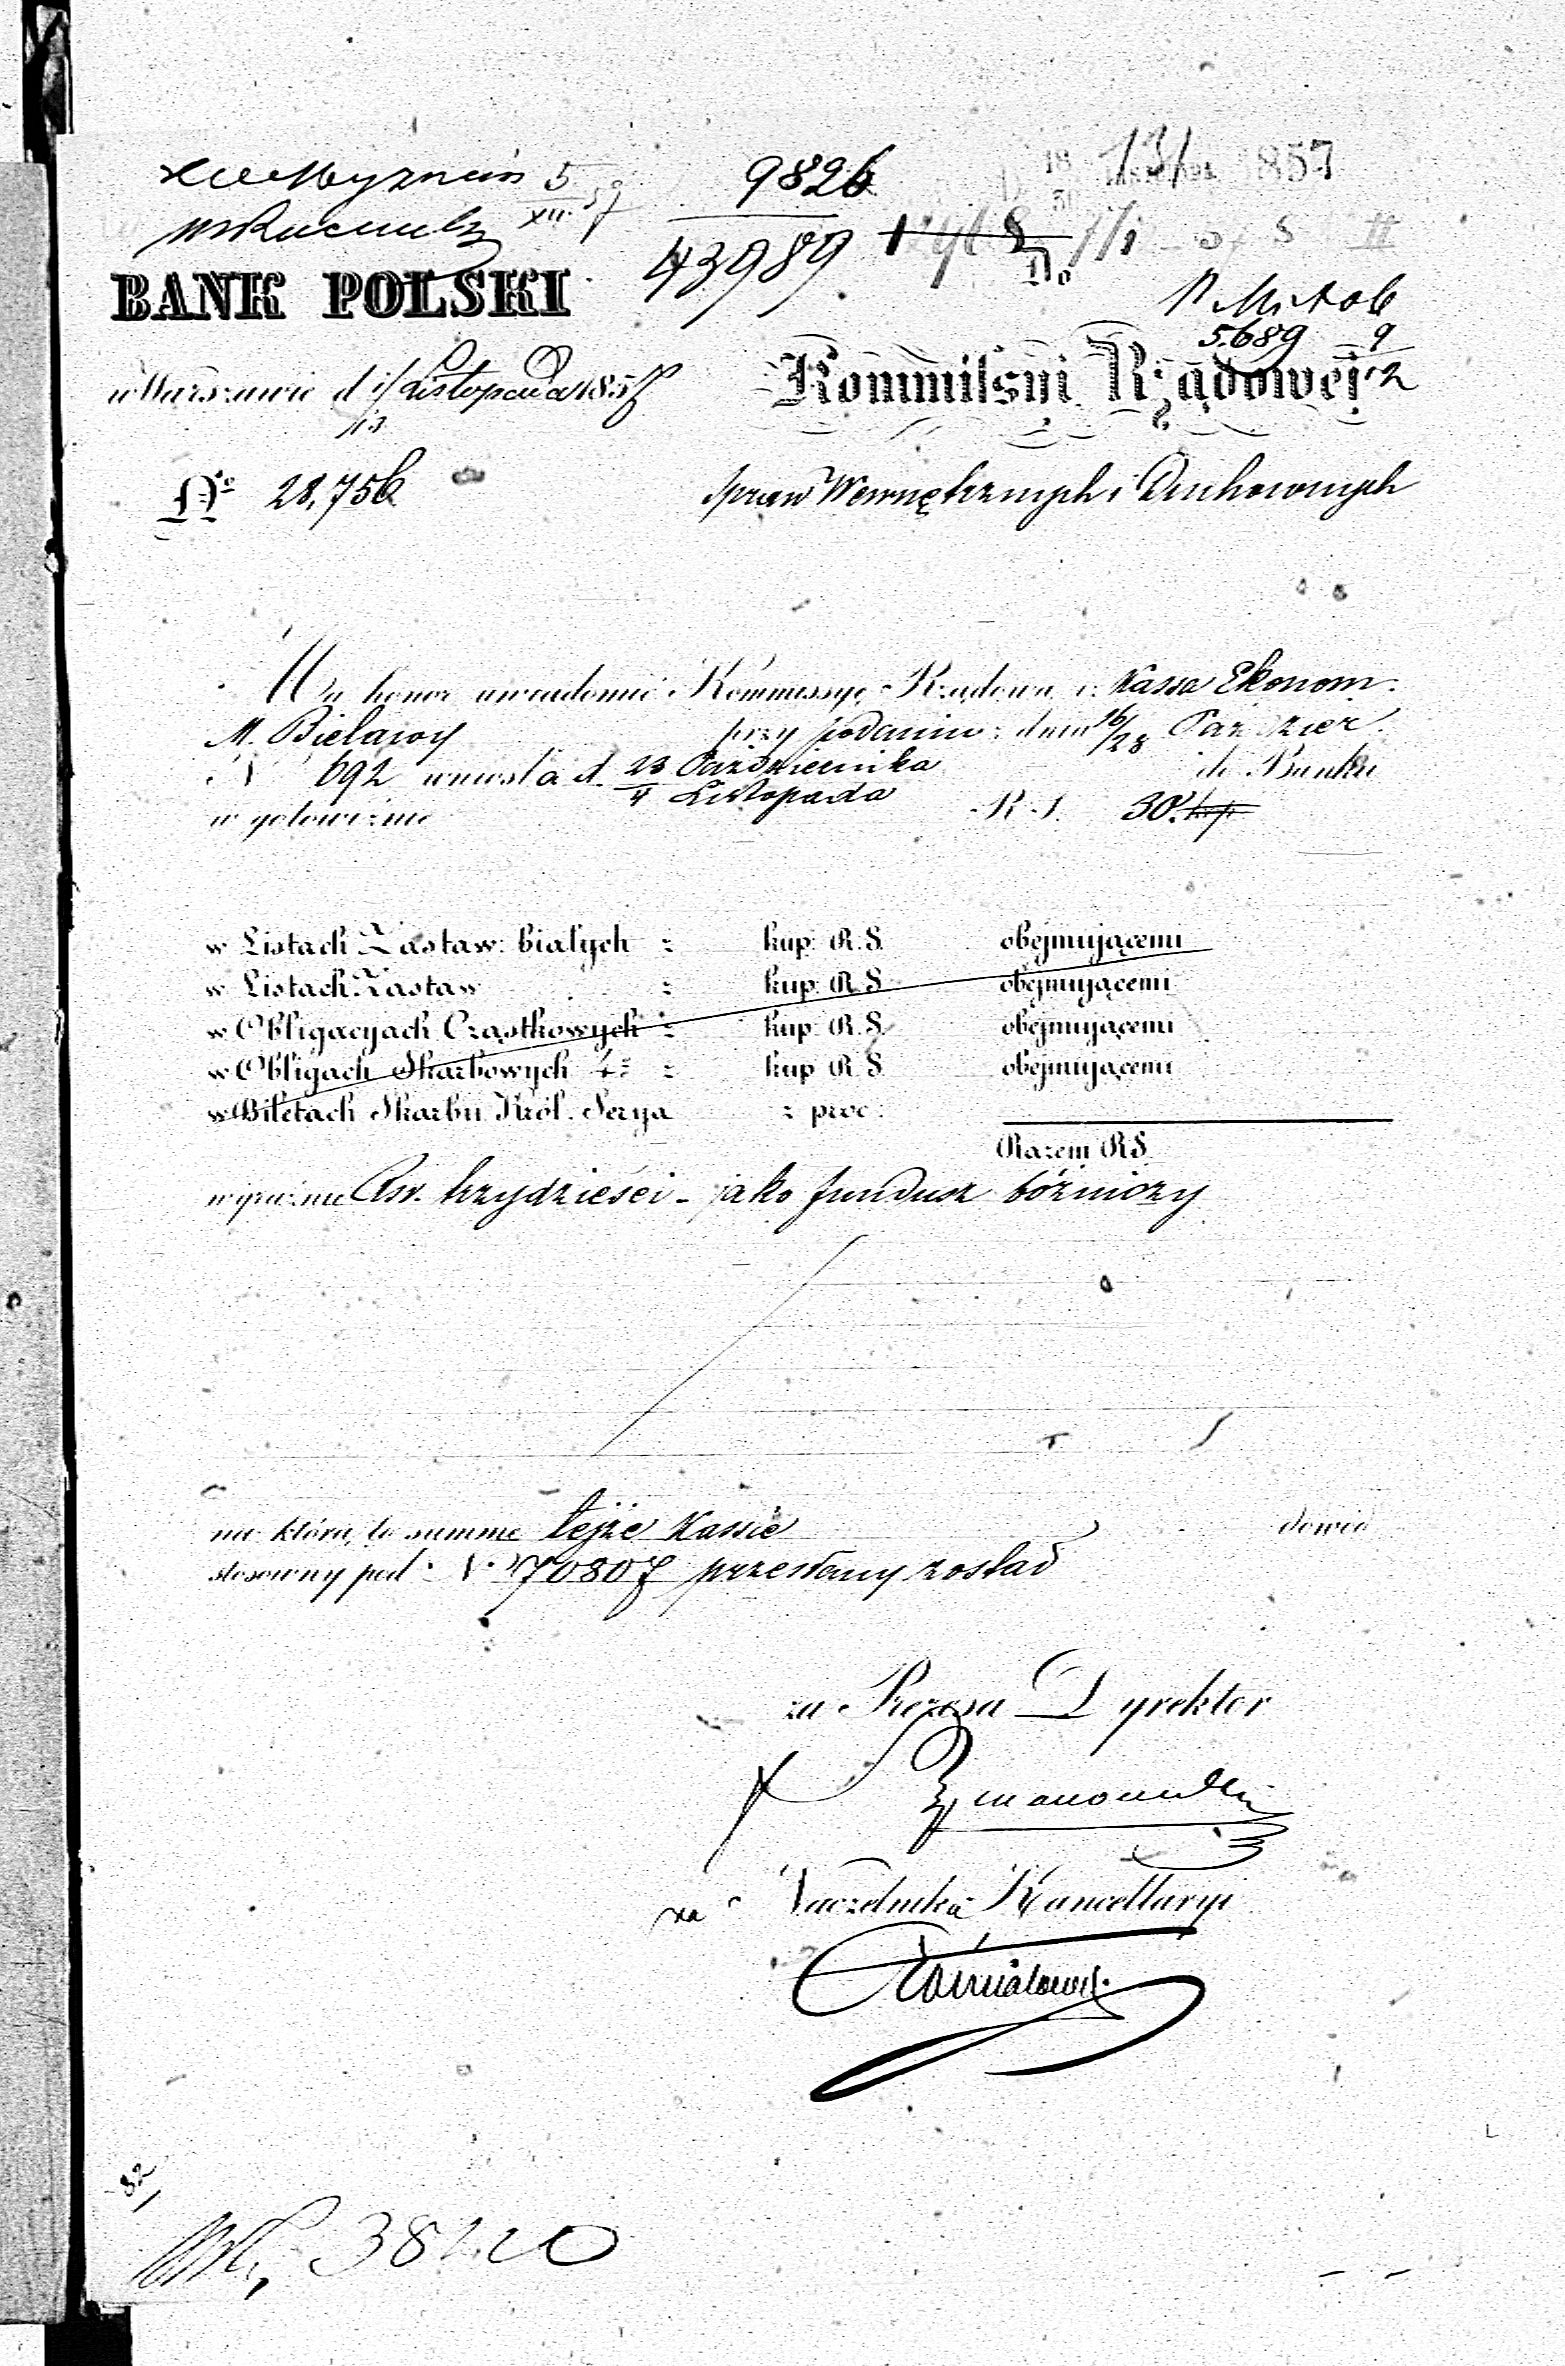 Wyznań 5/XII 57
9826
1857
43989
Do
BANK POLSKI
5689
Kommissyi Rządowej
w Warszawie d 1/13 Listopada 1857
Nro 28,756
Spraw Wewnętrznych i Duchownych
Ma honor uwiadomić Kommissyę Rządową iż Kassa Ekonom.
M. Bielawy przy podaniu z dnia 16/28 Paździer.
N 692 wniosła d. 23 Października / 4 Listopada do Banku
w gotowiznie R. S. 30. kop
w Listach Zastaw: białych z kup: R.S. obejmującemi
w Listach Zastaw z kup: R.S. obejmującemi
w Obligacyach Cząstkowych z kup: R.S. obejmującemi
w Obligach Skarbowych 4% z kup R.S. obejmującemi
w Biletach Skarbu Król. Serya z proc:
Razem RS.
wyraźnie Rsr. trzydzieści - jako fundusz bóżniczy
na którą to summę tejże Kassie dowód
stosowny pod N. 70807 przesłany został
za Prezesa Dyrektor
za Naczelnika Kancellaryi
82